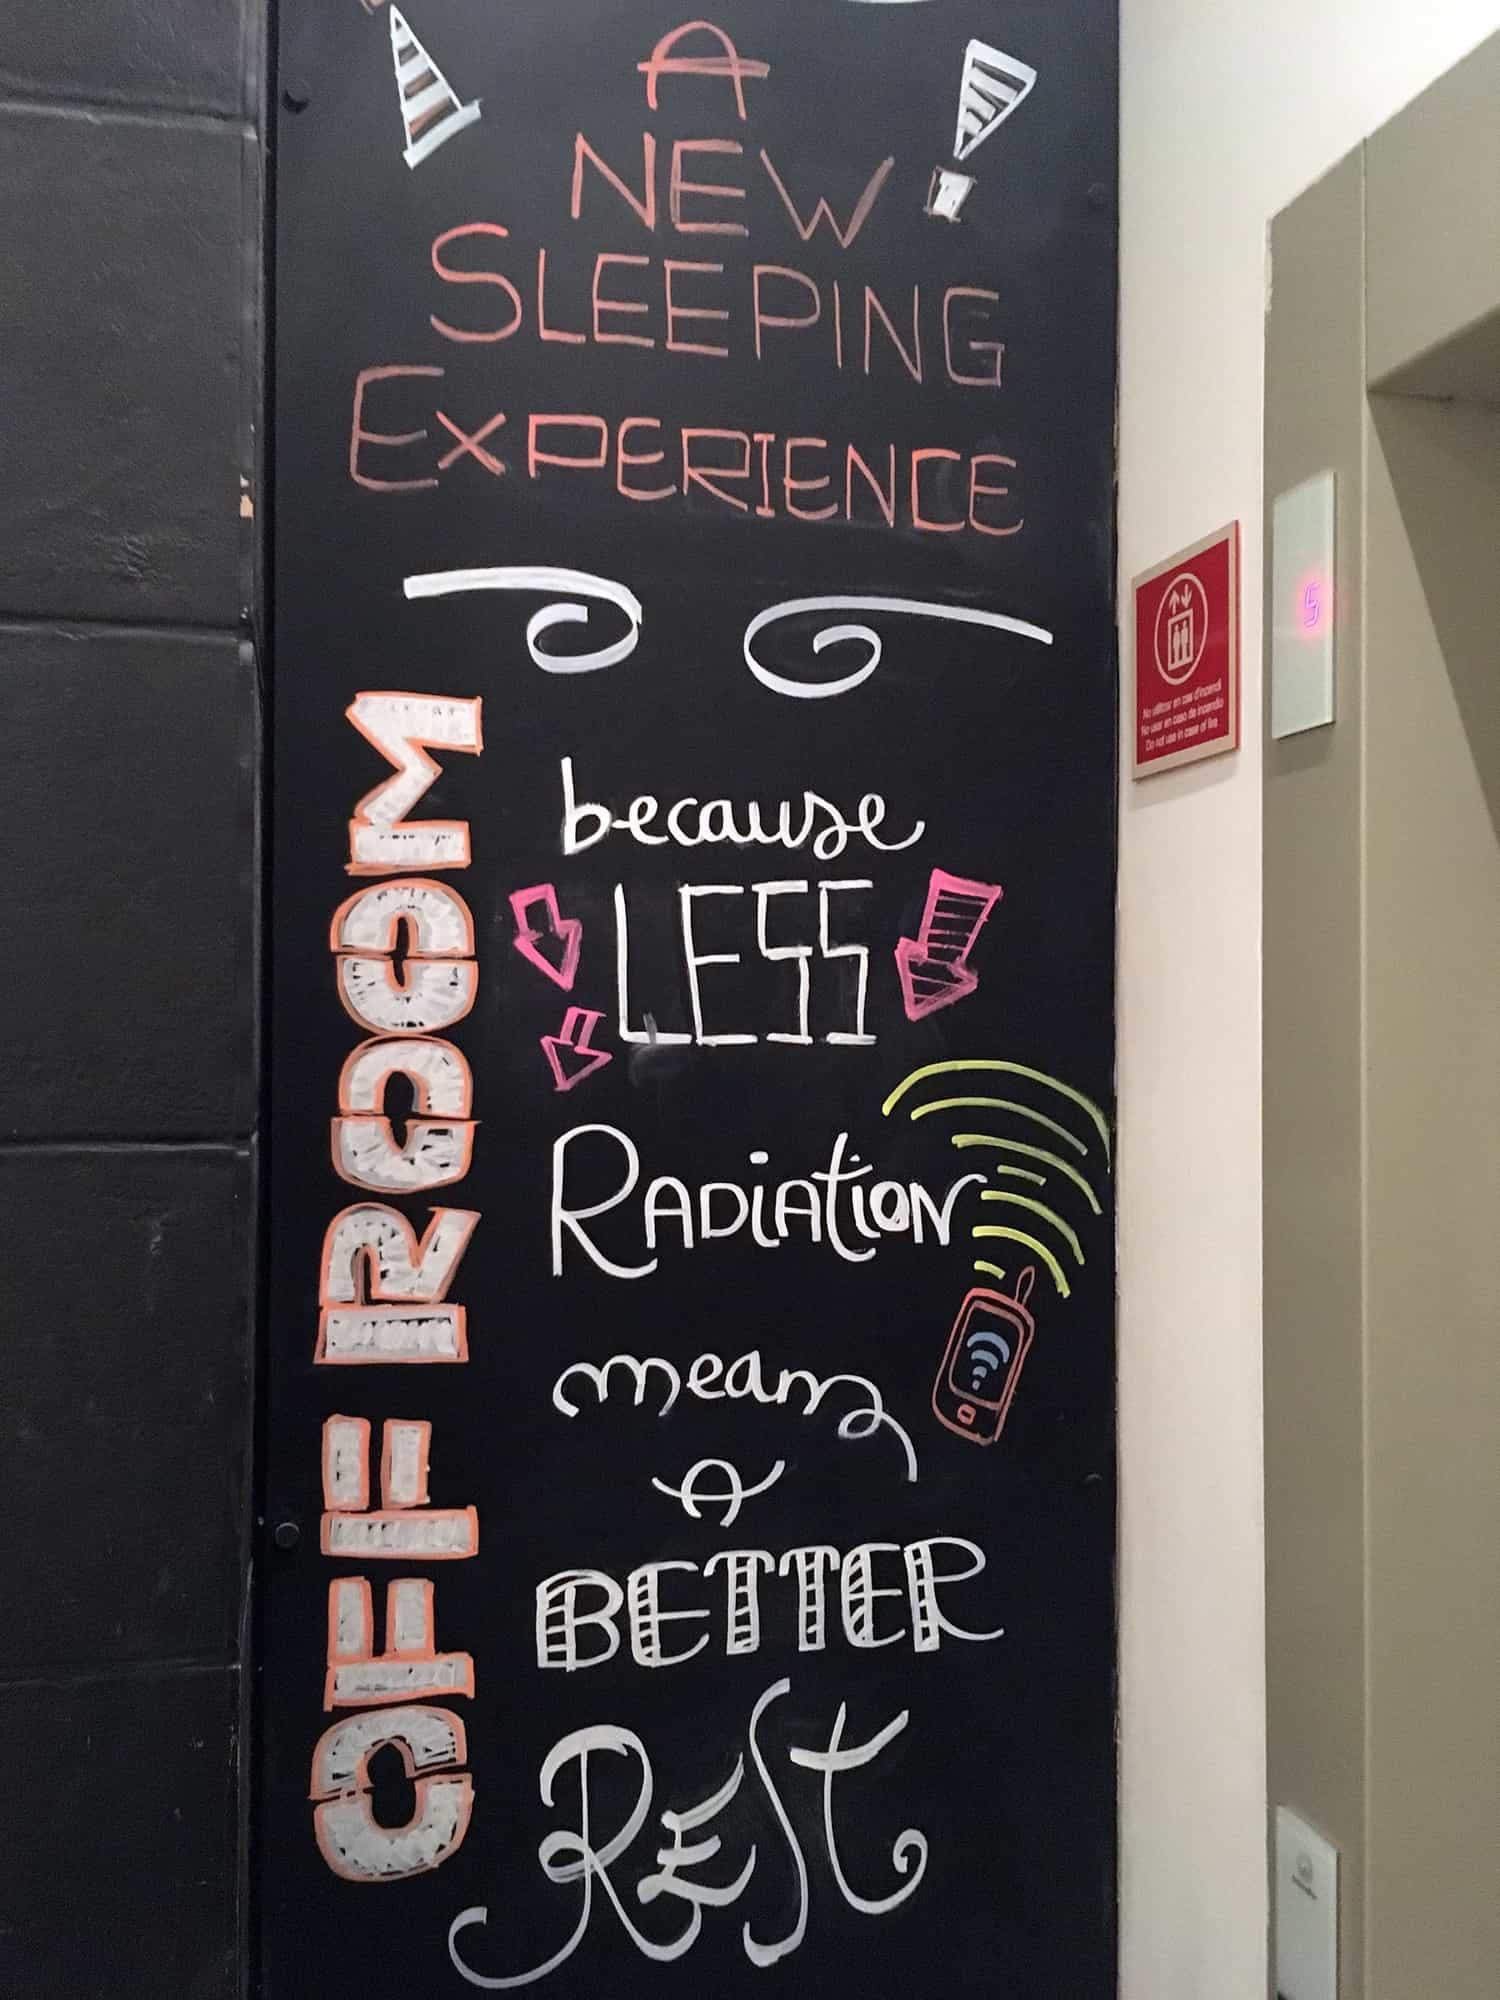 A
NEW
SLEEPING
EXPERIENCE
OFF ROOM
because
LESS
RADIATION
mean
A
BETTER
REST
5
No utilitzar en cas d'incendi
No usar en caso de incendio
Do not use in case of fire